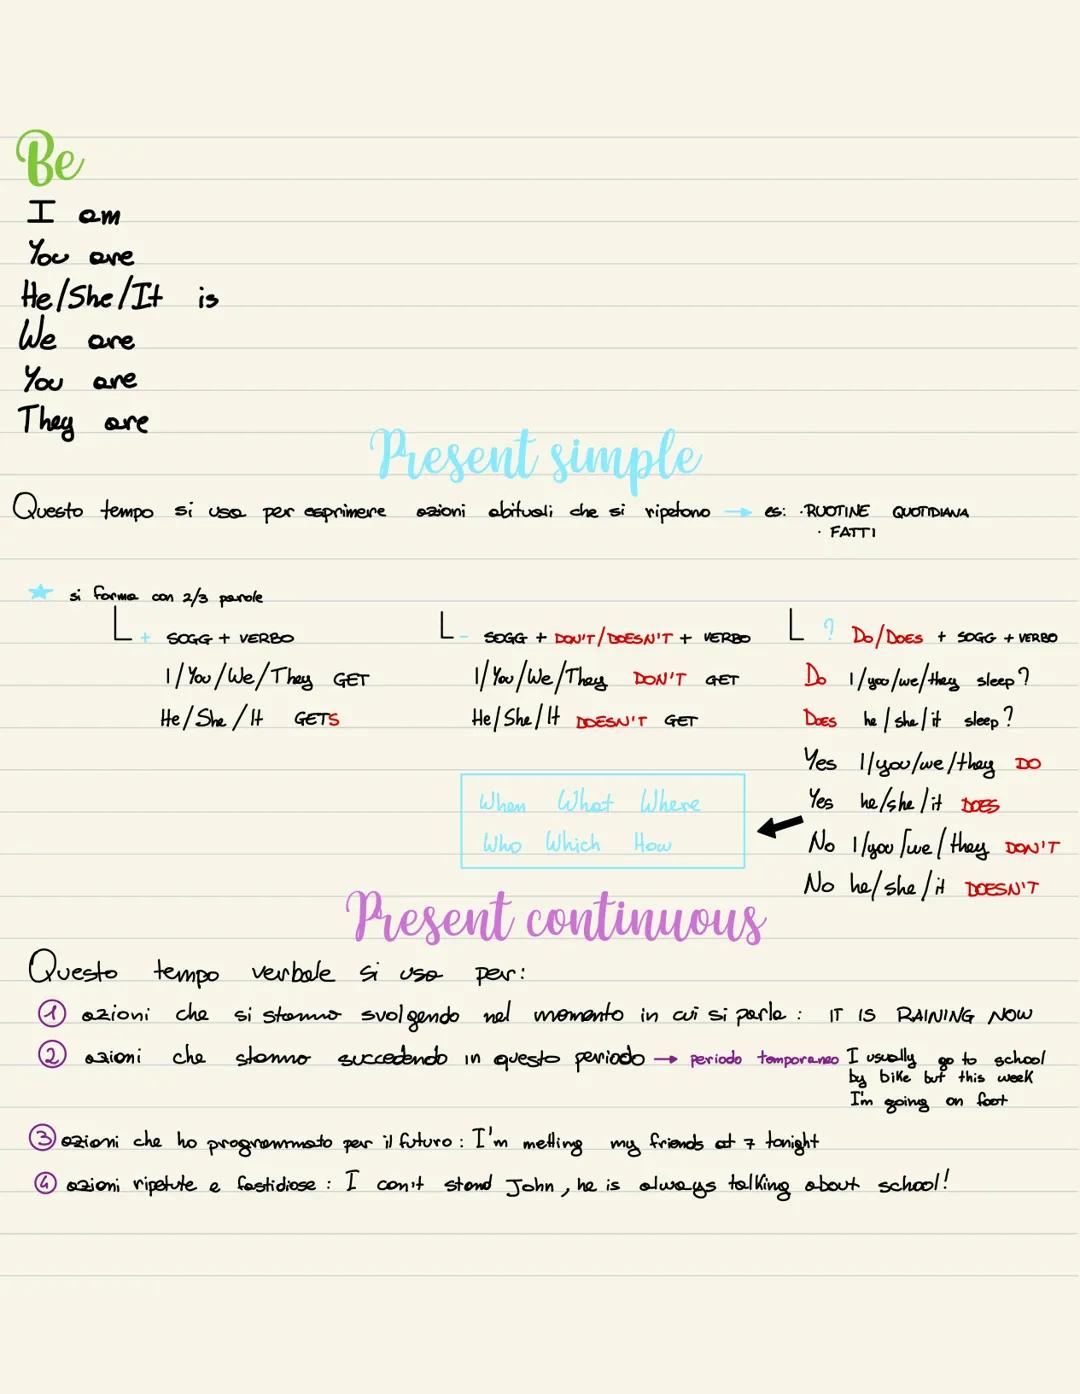 Be
I am
You are
He/She/It is
We are
You are
They are
Present simple
Questo tempo si usa per esprimere azioni abituali che si ripetono → es: ·RUOTINE QUOTIDIANA
· FATTI
★ si forma con 2/3 parole
+ SOGG + VERBO
I/You/We/They GET
He/She/It GETS
- SOGG + DON'T/DOESN'T + VERBO
I/You/We/They DON'T GET
He/She/It DOESN'T GET
? DO/DOES + SOGG + VERBO
DO I/you/we/they sleep?
DOES he/she/it sleep?
Yes I/you/we/they DO
Yes he/she/it DOES
No I/you/we/they DON'T
No he/she/it DOESN'T
When What Where
Who Which How
Present continuous
Questo tempo verbale si usa per:
① azioni che si stanno svolgendo nel momento in cui si parla: IT IS RAINING NOW
② azioni che stanno succedendo in questo periodo → periodo temporaneo I usually go to school
by bike but this week
I'm going on foot
③ azioni che ho programmato per il futuro: I'm metting my friends at 7 tonight
④ azioni ripetute e fastidiose: I can't stand John, he is always talking about school!